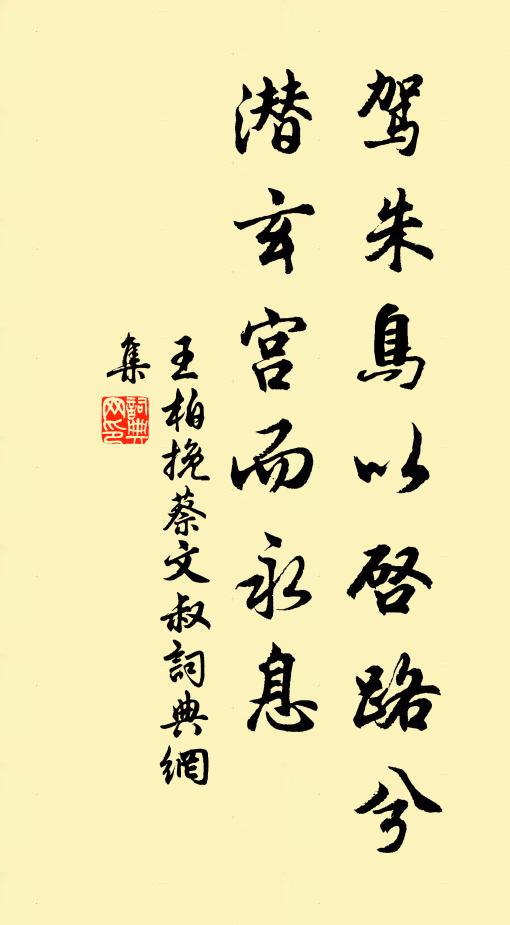 驾朱鳥以啓路兮
潜玄宫而永息
王柏挽蔡文叔詞典網
集
詞典
网印